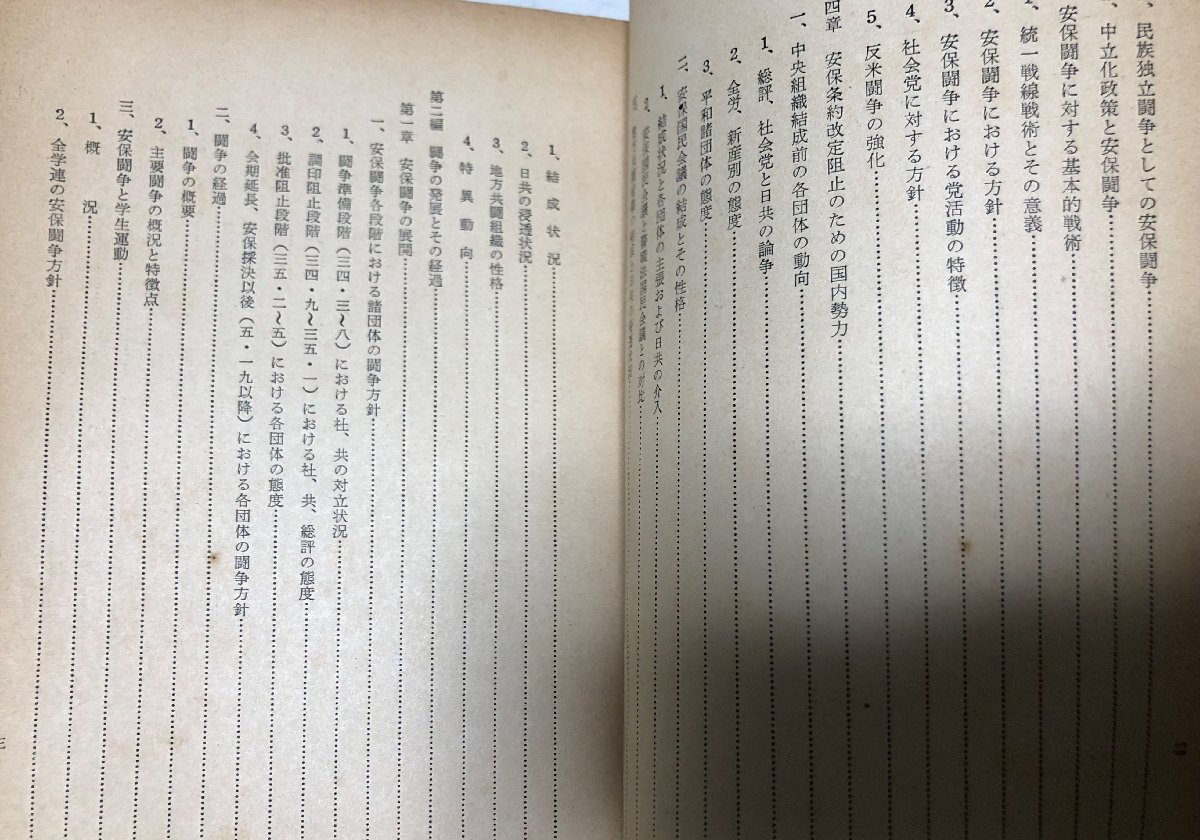 、民族独立闘争としての安保闘争
、中立化政策と安保闘争
安保闘争に対する基本的戦術
1、統一戦線戦術とその意義
2、安保闘争における方針
3、安保闘争における党活動の特徴
4、社会党に対する方針
5、反米闘争の強化
四章 安保条約改定阻止のための国内勢力
一、中央組織結成前の各団体の動向
1、総評、社会党と日共の論争
2、全労、新産別の態度
3、平和諸団体の態度
二、安保国民会議の結成とその性格
1、結成状況と各団体の主張および日共の介入
2、安保国民会議と警職法国民会議との対比
1、結成状況
2、日共の浸透状況
3、地方共闘組織の性格
4、特異動向
第二編 闘争の発展とその経過
第一章 安保闘争の展開
一、安保闘争各段階における諸団体の闘争方針
1、闘争準備段階(三四・三〜八)における社、共の対立状況
2、調印阻止段階(三四・九〜三五・一)における社、共、総評の態度
3、批准阻止段階(三五・二〜五)における各団体の態度
4、会期延長、安保採決以後(五・一九以降)における各団体の闘争方針
二、闘争の経過
1、闘争の概要
2、主要闘争の概況と特徴点
三、安保闘争と学生運動
1、概況
2、全学連の安保闘争方針